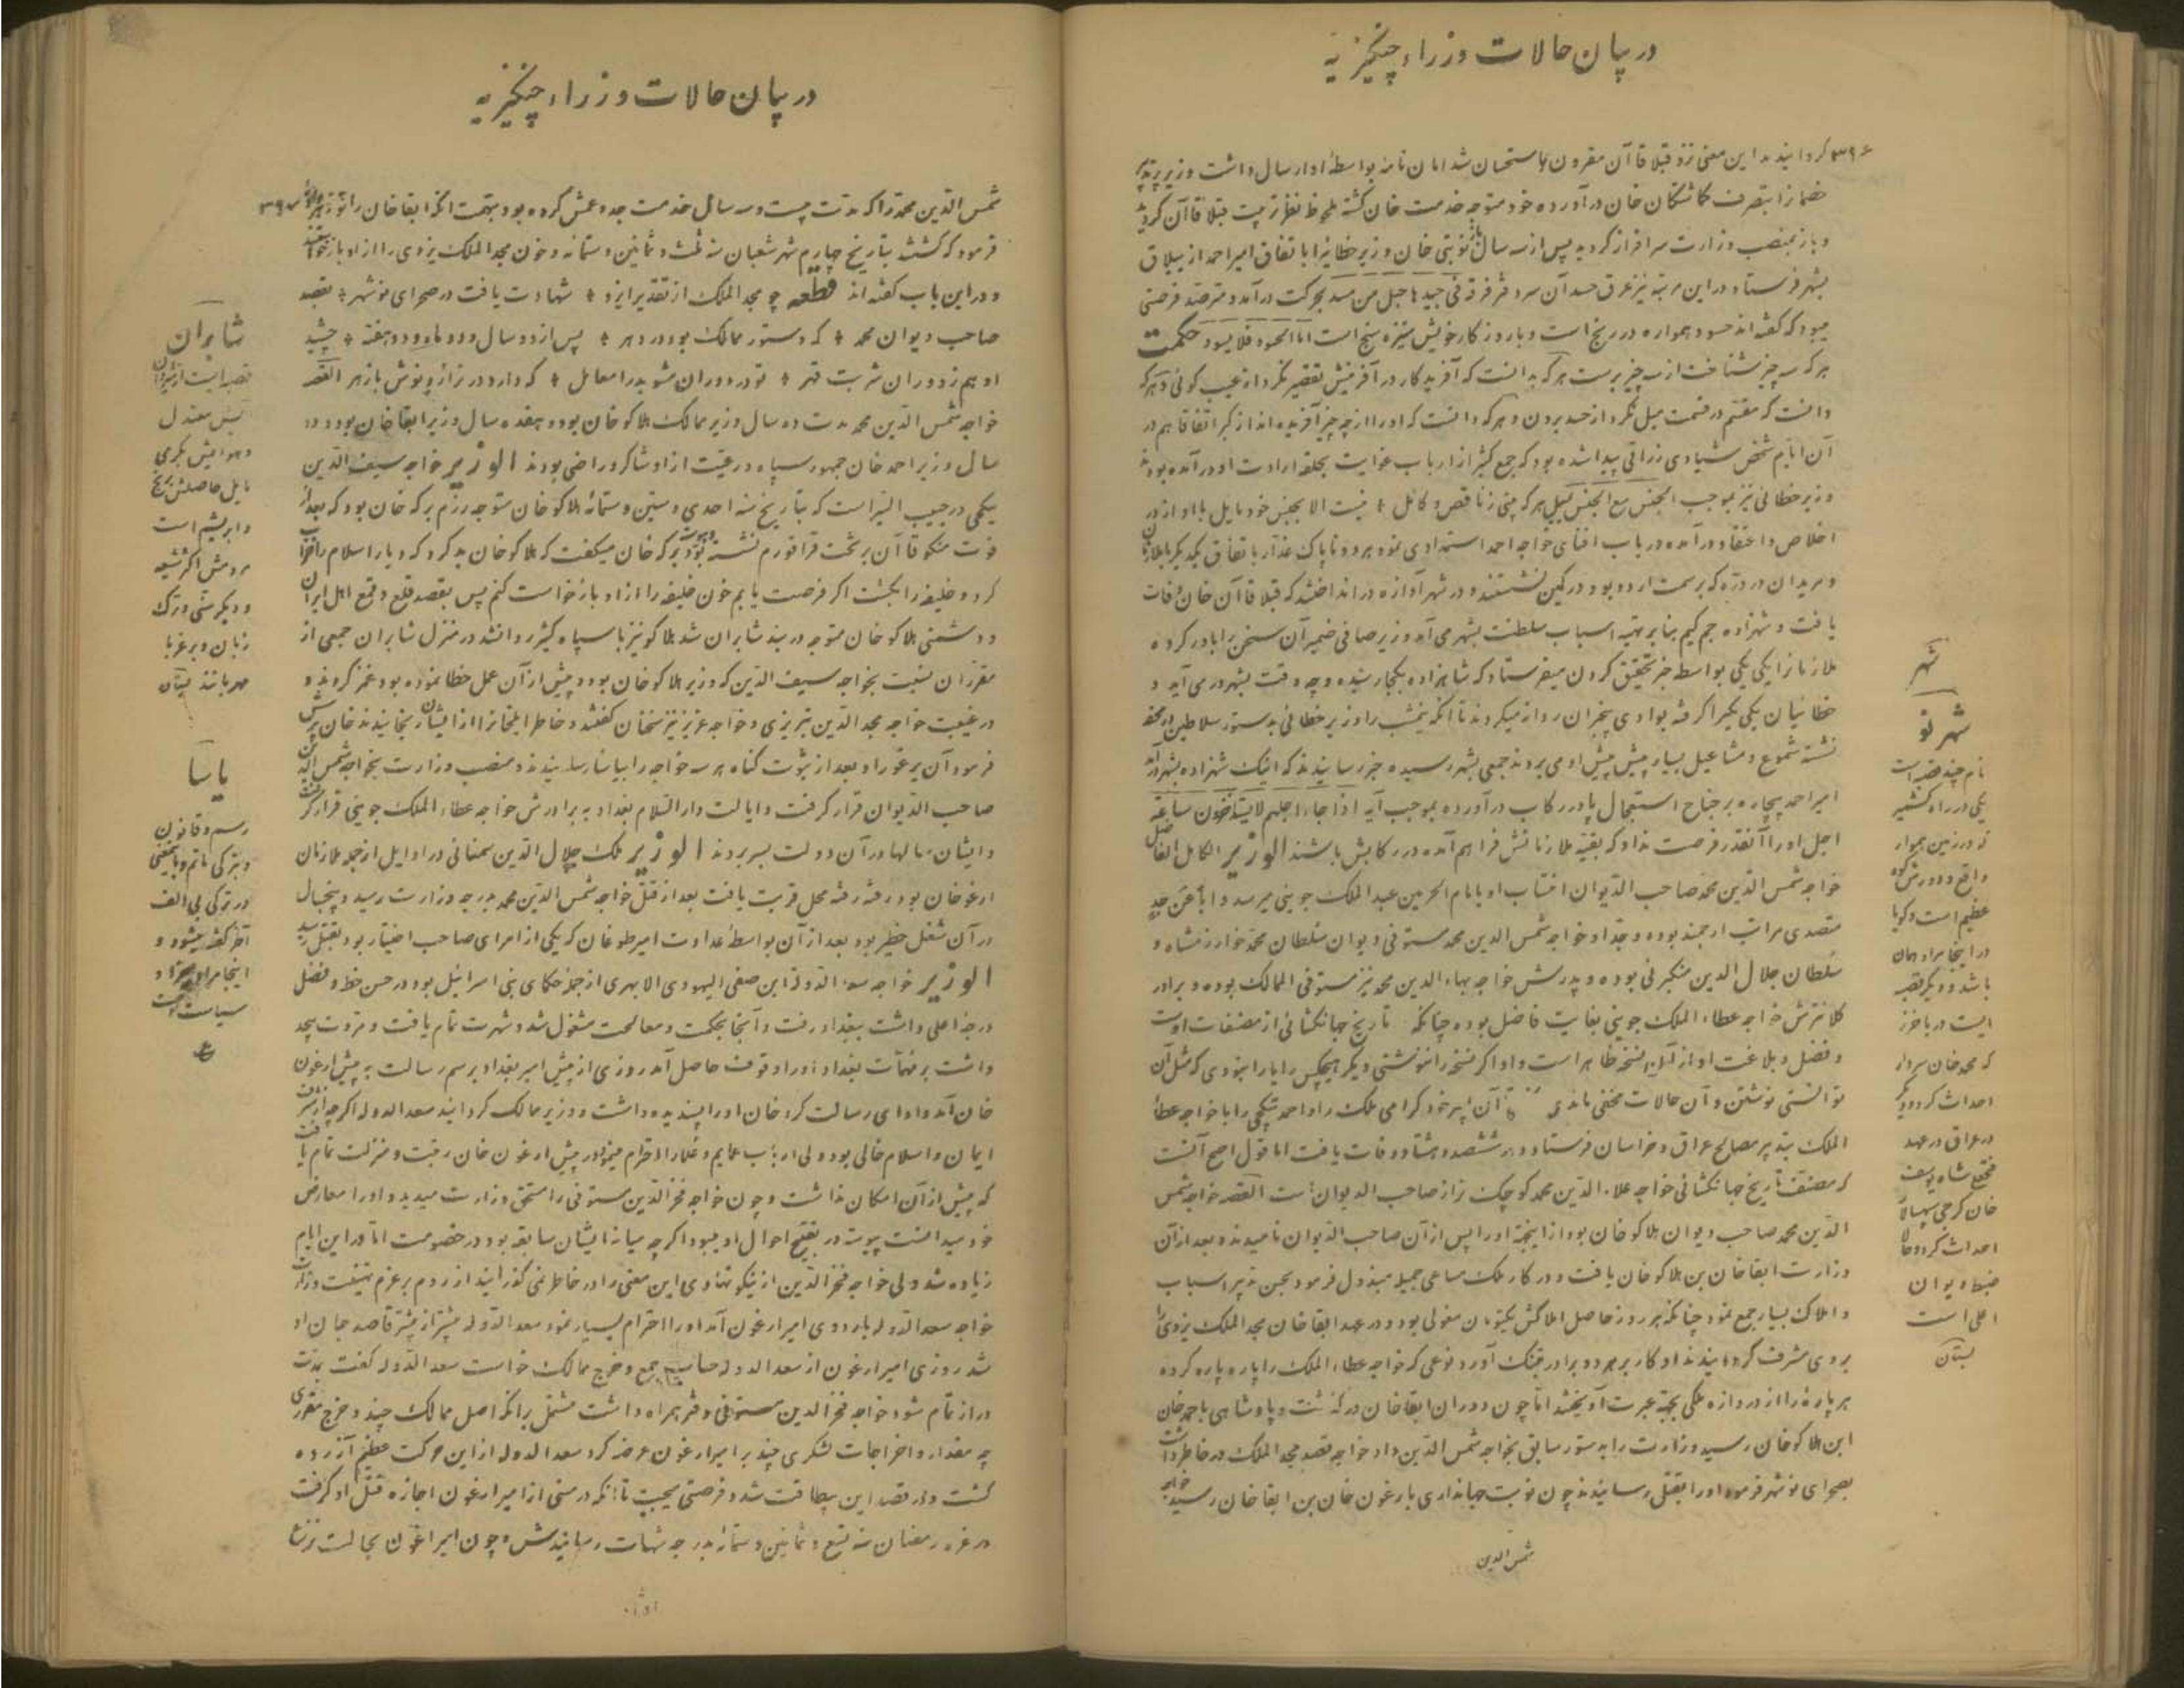 در بیان حالات وزراء چنگیزیه
۳۹۶ کردانیدند این معنی نزد قبلا قاآن مقرون باستحسان شد امان نامه بواسطهٔ او ارسال داشت وزیر
ختمانرا بتصرف کماشتکان خان درآورده خود متوجه خدمت خان کشته ملحوظ نظر تربیت قبلا قاآن کردید
و باز بمنصب وزارت سرافراز کردید پس از سه سال نوبتی خان وزیر خطایرا باتفاق امیر احمد از ییلاق
بشهر فرستاد در این مرتبه نیز عرق حسد آن سردفتر فرقه فی جیدها حبل من مسد بحرکت درآمد و مترصد فرصتی
میبود که کفته‌اند حسود همواره در رنج است و با روزکار خویش ستیزه سنج است اما المحسود فلا یسود حکمت
هر که سه چیز شناخت از سه چیز برست هر که بدانست که آفریدکار در آفرینش تقصیر نکرد از عیب کوئی و هر که
دانست که مقسم در قسمت میل نکرد از حسد بردن و هر که دانست که او را از چه چیز آفریده‌اند از کبر اتفاقا هم در
آن ایام شخص شیادی زراقی پیدا شده بود که جمع کثیر از ارباب غوایت بحلقه ارادت او درآمده بودند
وزیر خطائی نیز بموجب الجنس مع الجنس یمیل هر که بینی ز ناقص و کامل نیست الا بجنس خود مایل با او از در
اخلاص و اعتقاد درآمده در باب افنای خواجه احمد استمدادی نمود هر دو ناپاک غدار باتفاق یکدیکر با ملازمان
و مریدان در دره که بر سمت اردو بود در کمین نشستند و در شهر آوازه در انداختند که قبلا قاآن خان وفات
یافت و شهزاده جم کیم بنا بر تهیه اسباب سلطنت بشهر می آید وزیر صافی ضمیر آن سخن را باور کرده
ملازمانرا یکی یکی بواسطه خبر تحقیق کردن میفرستاد که شاهزاده بکجا رسیده و چه وقت بشهر در می آید و
خطائیان یکی یکیرا کرفته بوادی بیخبران روانه میکردند تا آنکه نیمشب را وزیر خطائی بدستور سلاطین در محفه
نشسته شموع و مشاعیل بسیار پیش پیش او می بردند جمعی بشهر رسیده خبر رسانیدند که اینک شهزاده بشهر درآمد
امیر احمد بیچاره بر جناح استعجال پا در رکاب درآورده بموجب آیه اذا جاء اجلهم لا یستاخرون ساعة
اجل او را آنقدر فرصت نداد که بقیه ملازمانش فراهم آمده در رکابش باشند الوزیر الکامل الفاضل
خواجه شمس الدین محمد صاحب الدیوان انتساب او بامام الحرمین عبد الملک جوینی میرسد و اباً عن جدٍ
متصدی مراتب ارجمند بوده و جد او خواجه شمس الدین محمد مستوفی دیوان سلطان محمد خوارزمشاه و
سلطان جلال الدین منکبرنی بوده و پدرش خواجه بهاء الدین محمد نیز مستوفی الممالک بوده و برادر
کلانترش خواجه عطاء الملک جوینی بغایت فاضل بوده چنانکه تاریخ جهانکشائی از مصنفات اوست
و فضل و بلاغت او از آن نسخه ظاهر است و او اکر نسخه را ننوشتی دیکر هیچکس را یارا نبودی که مثل آن
توانستی نوشتن و آن حالات مخفی ماندی آن پیر خرد کرامی ملک را و احمد بیتکچی را با خواجه عطا
الملک بتدبیر مصالح عراق و خراسان فرستاد و در ششصد و هشتاد وفات یافت اما قول اصح آنست
که مصنف تاریخ جهانکشائی خواجه علاء الدین محمد کوچک‌تر از صاحب الدیوان است القصه خواجه شمس
الدین محمد صاحب دیوان هلاکو خان بود از اینجهة او را پس از آن صاحب الدیوان نامیدند و بعد از آن
وزارت ابقا خان بن هلاکو خان یافت و در کار ملک مساعی جمیله مبذول فرمود بحسن تدبیر اسباب
و املاک بسیار جمع نمود چنانکه هر روز حاصل املاکش یکتومان مغولی بود و در عهد ابقا خان مجد الملک یزدی را
بر وی مشرف کردانیدند او کار بر هر دو برادر بتنک آورد نوعی که خواجه عطاء الملک را پاره پاره کرده
هر پاره را از دروازه ملکی بجهة عبرت آویختند اما چون دوران ابقا خان در کذشت و پادشاهی باحمد خان
ابن هلاکو خان رسید وزارت را بدستور سابق بخواجه شمس الدین داد خواجه قصد مجد الملک در خاطر داشت
بصحرای نوشهر فرموده او را بقتل رسانیدند چون نوبت جهانداری بارغون خان بن ابقا خان رسید خواجه
شمس الدین
شهر
شهر نو
نام چند قصبه است
یکی در راه کشمیر
که در زمین هموار
واقع و دورش کوه
عظیم است و کویا
در اینجا مراد همان
باشد و دیکر قصبه
ایست در باخرز
که محمد خان سردار
احداث کرد و دیکر
در عراق در عهد
فتحعلی شاه یوسف
خان کرجی سپهسالار
احداث کرد و حالا
ضبط دیوان
اعلی است
بستان
در بیان حالات وزراء چنگیزیه
شمس الدین محمد را که مدت بیست و سه سال خدمت جد و عمش کرده بود بتهمت آنکه ابقا خان را تو زهر داده ۳۹۷
فرمود که کشتند بتاریخ چهارم شهر شعبان سنه ثلث و ثمانین و ستمائه و خون مجد الملک یزدی را از او باز خواستند
و در این باب کفته‌اند قطعه چو مجد الملک از تقدیر ایزد شهادت یافت در صحرای نوشهر بقصد
صاحب دیوان محمد که دستور ممالک بود در دهر پس از دو سال و دو ماه و دو هفته چشید
او هم ز دوران شربت قهر تو در دوران مشو بدرا معامل که دارد در ترازو نوش با زهر القصه
خواجه شمس الدین محمد مدت ده سال وزیر ممالک هلاکو خان بود و هفده سال وزیر ابقا خان بود و دو
سال وزیر احمد خان جمهور سپاه و رعیت از او شاکر و راضی بودند الوزیر خواجه سیف الدین
بیتکچی در حبیب السیر است که بتاریخ سنه احدی و ستین و ستمائه هلاکو خان متوجه رزم برکه خان بود که بعد از
فوت منکو قاآن بر تخت قراقورم نشسته بود برکه خان میکفت که هلاکو خان بد کرد که دیار اسلام را خراب
کرد و خلیفه را بکشت اکر فرصت یابم خون خلیفه را از او باز خواست کنم پس بقصد قلع و قمع اهل ایران
و دشمنی هلاکو خان متوجه دربند شابران شد هلاکو نیز با سپاه کثیر روانشد در منزل شابران جمعی از
مقرران نسبت بخواجه سیف الدین که وزیر هلاکو خان بود و پیش از آن عمل خطا نموده بود غمز کردند و
در غیبت خواجه مجد الدین تبریزی و خواجه عزیز نیز سخنان کفتند و خاطر ایلخانرا از ایشان رنجانیدند خان پرسش
فرمود آن یرغو را و بعد از ثبوت کناه هر سه خواجه را بیاسا رسانیدند و منصب وزارت بخواجه شمس الدین
صاحب الدیوان قرار کرفت و ایالت دار السلام بغداد به برادرش خواجه عطاء الملک جوینی قرار کرفت
و ایشان سالها در آن دولت بسر بردند الوزیر ملک جلال الدین سمنانی در اوایل از جمله ملازمان
ارغو خان بود رفته رفته محل قربت یافت بعد از قتل خواجه شمس الدین محمد بدرجه وزارت رسید و پنجسال
در آن شغل خطیر بود بعد از آن بواسطهٔ عداوت امیر طوغان که یکی از امرای صاحب اختیار بود بقتل رسید
الوزیر خواجه سعد الدوله ابن صفی الیهودی الابهری از جمله حکمای بنی اسرائیل بود در حسن خط و فضل
درجه اعلی داشت ببغداد رفت و آنجا بحکمت و معالجت مشغول شد و شهرت تمام یافت و مروت بیحد
داشت بر مهمات بغداد او را وقوف حاصل آمد روزی از پیش امیر بغداد برسم رسالت به پیش ارغون
خان آمد و ادای رسالت کرد خان او را پسندیده داشت و وزیر ممالک کردانید سعد الدوله اکرچه از شرف
ایمان و اسلام خالی بود ولی ارباب عمایم و علما را احترام مینمود در پیش ارغون خان رتبت و منزلت تمام یافت
که پیش از آن امکان نداشت و چون خواجه فخر الدین مستوفی را مستحق وزارت میدید و او را معارض
خود میدانست پیوسته در تقبیح احوال او میبود اکرچه میانه ایشان سابقه بود در خصومت اما در این ایام
زیاده شد ولی خواجه فخر الدین از نیکو نهادی این معنی را در خاطر نمی کذرانید از روم بر عزم تهنیت وزارت
خواجه سعد الدوله باردوی امیر ارغون آمد او را احترام بسیار نمود سعد الدوله بیشتر از پیشتر قاصد جان او
شد روزی امیر ارغون از سعد الدوله حساب جمع و خرج ممالک خواست سعد الدوله کفت بمدت
دراز تمام شود خواجه فخر الدین مستوفی دفتر همراه داشت مشتمل بر آنکه اصل ممالک چند و خرج مقرری
چه مقدار و اخراجات لشکری چند بر امیر ارغون عرضه کرد سعد الدوله از این حرکت عظیم آزرده
کشت و در قصد این بیطاقت شد و فرصتی میجست تا آنکه در مستی از امیر ارغون اجازه قتل او کرفت
در غره رمضان سنه تسع و ثمانین و ستمائه بدرجه شهادت رسانیدش و چون امیر ارغون بحالت
شابران
قصبه ایست از شیروان
بس معتدل
و هوایش بکرمی
مایل حاصلش برنج
و ابریشم است
مردمش اکثر شیعه
و دیکر سنی و ترک
زبان و بر غربا
مهربانند بستان
یاسا
رسم و قانون
و بترکی ماتم و بمعنی
در ترکی بی الف
آخر کفته میشود و
اینجا مراد سزا و
سیاست است